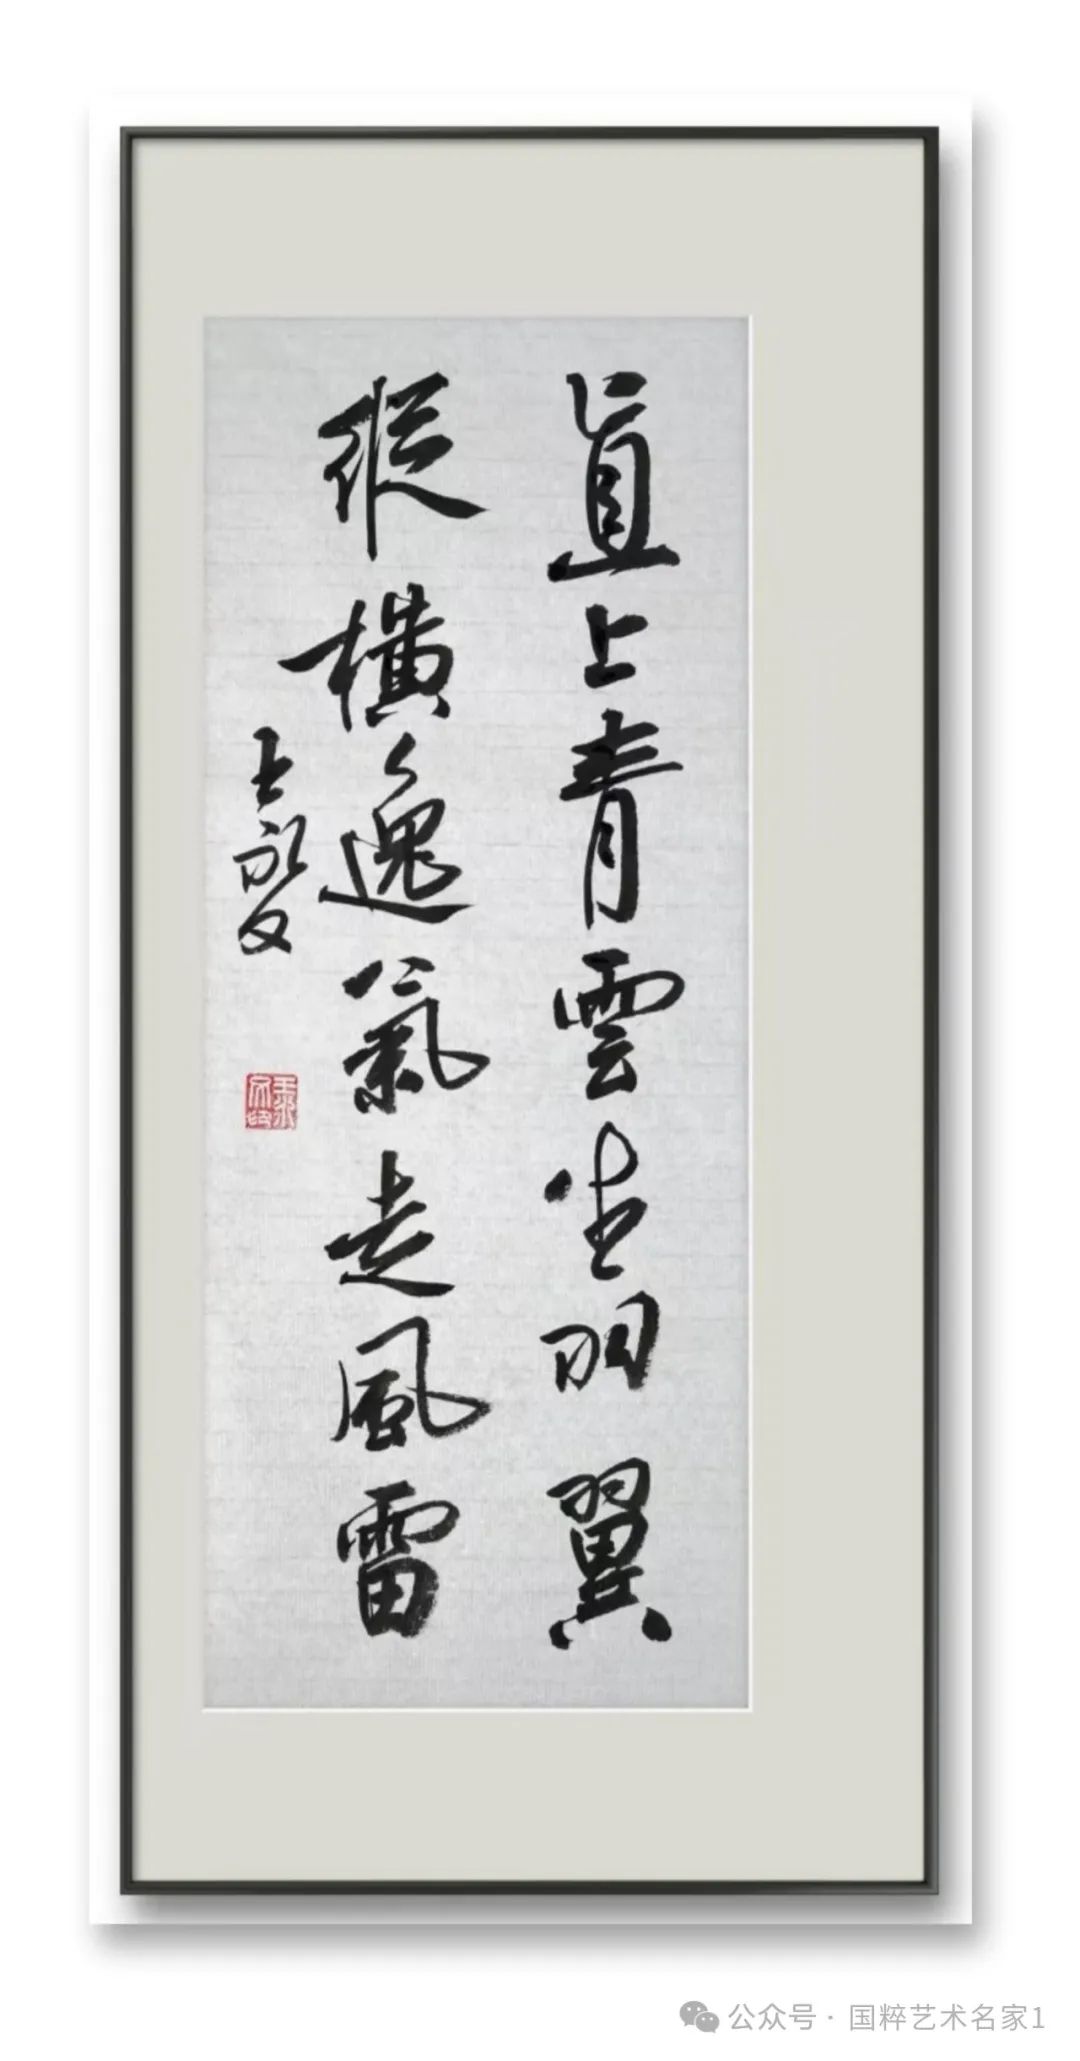 直上青雲生羽翼
縱橫逸氣走風雷
王永
公众号 · 国粹艺术名家1